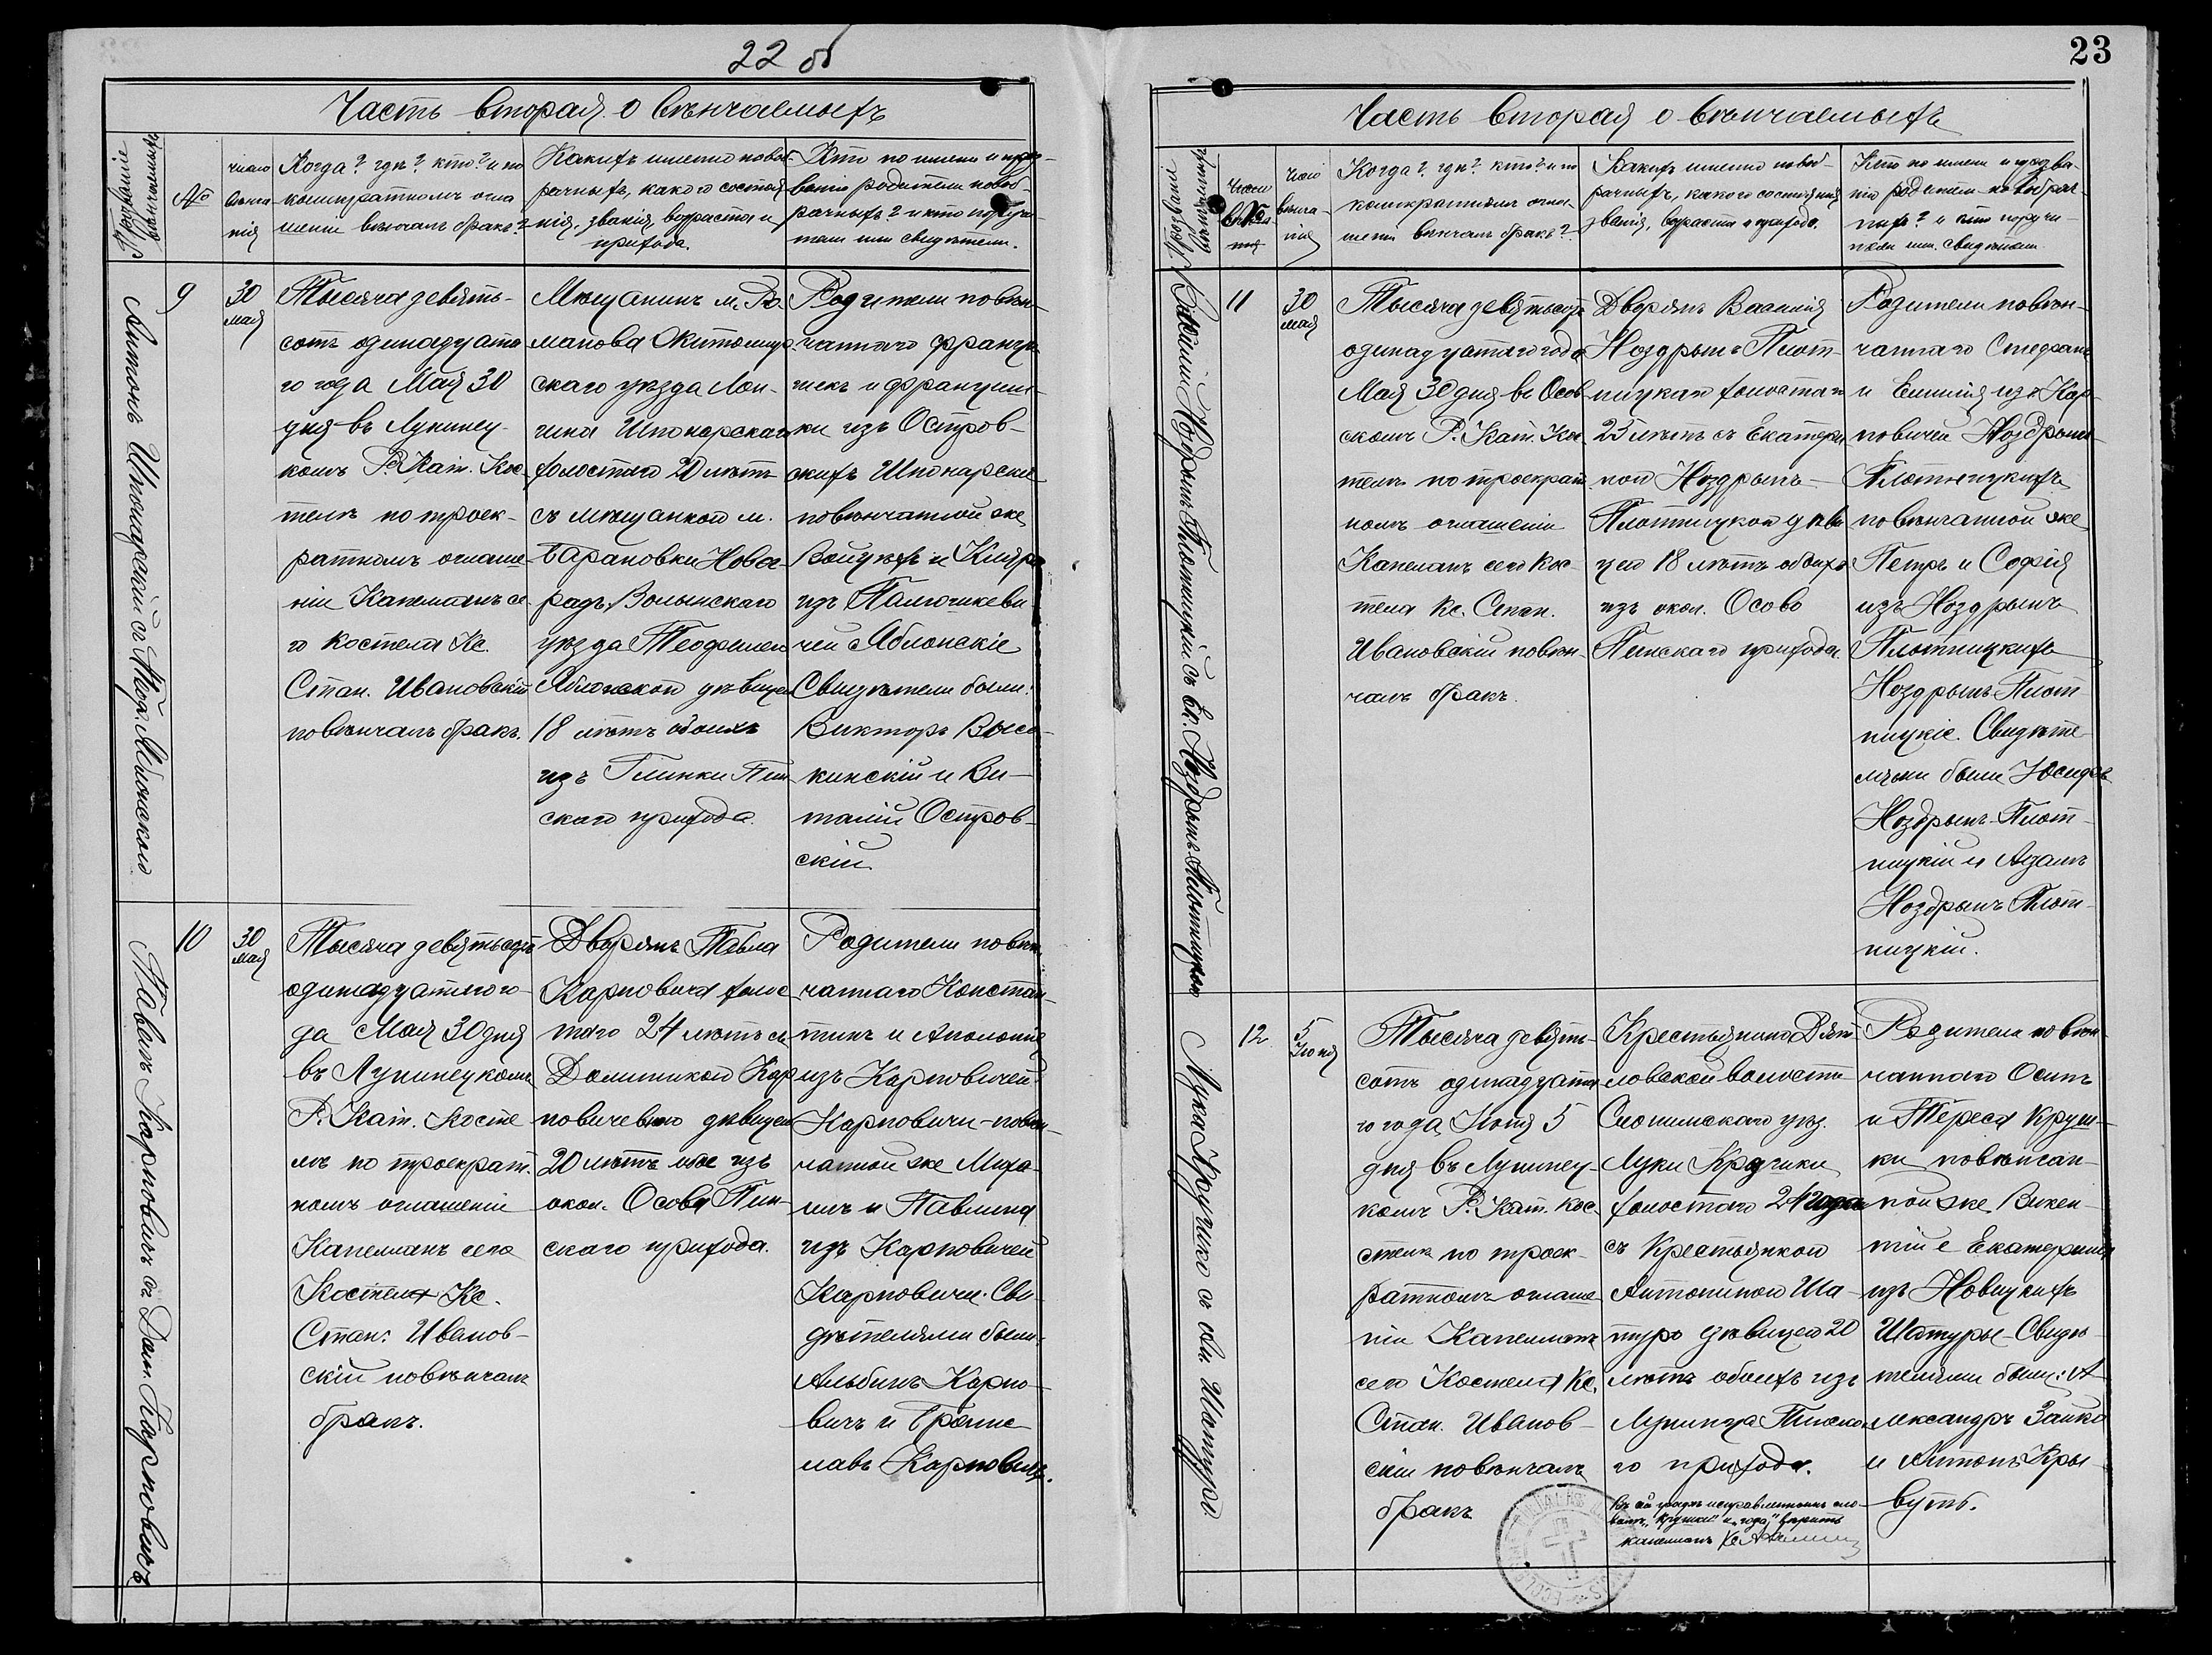 22 об
Часть вторая о вѣнчаемыхъ
№
число
вѣнча
нія
Когда? гдѣ? кто? и по
коликратномъ огла
шеніи вѣнчалъ бракъ?
Какихъ именно новоб-
рачныхъ, какого состоя
нія, званія, возраста и
прихода.
Кто по имени и проз-
ванію родители новоб-
рачныхъ? и кто поручи
тели или свидѣтели.
Антонъ Шпонарскій съ Теоф. Яблонской
9
30
мая
Тысяча девять-
сотъ одинадцата
го года Мая 30
дня въ Лунинец-
комъ Р. Кат. Ко-
стелѣ по троек-
ратномъ оглаше-
ніи Капеланъ се
го костела Кс.
Стан. Ивановскій
повѣнчалъ бракъ.
Мѣщанинъ м. Ро-
манова Житомир-
скаго уѣзда Лон-
гина Шпонарскаго
холостаго 20 лѣтъ
съ мѣщанкой м.
Барановки Новог-
радъ Волынскаго
уѣзда Теофилей
Яблонской дѣвицей
18 лѣтъ обоихъ
изъ Глинки Пин
скаго прихода.
Родители повѣн-
чаннаго Францъ
ишекъ и Францишк
ки изъ Остров-
скихъ Шпонарскіе
повѣнчанной же
Войцѣхъ и Кляра
изъ Палючикеви
чей Яблонскіе
Свидѣтели были:
Викторъ Высо-
кинскій и Ви-
талій Остров-
скій
Павелъ Карповичъ съ Дом. Карповичъ
10
30
мая
Тысяча девятьсотъ
одинадцатаго го-
да Мая 30 дня
въ Лунинецкомъ
Р. Кат. Косте
лѣ по троекрат-
номъ оглашеніи
Капелланъ сего
Костела Кс.
Стан. Иванов-
скій повѣнчалъ
бракъ.
Дворянъ Павла
Карповича холос
таго 24 лѣтъ съ
Доминикой Кар
повичевною дѣвицей
20 лѣтъ обое изъ
окол. Осова Пин-
скаго прихода.
Родители повѣн-
чаннаго Констан-
тинъ и Аполонія
изъ Карповичей
Карповичи-повѣн-
чанной же Миха-
илъ и Павлина
изъ Карповичей
Карповичи. Сви-
дѣтелями были:
Альбинъ Карпо-
вичъ и Брони-
лавъ Карповичъ.
23
Часть вторая о вѣнчаемыхъ
№
Число
вѣнча-
нія
Когда? гдѣ? кто? и по
коликратномъ огла-
шеніи вѣнчалъ бракъ?
Какихъ именно новоб-
рачныхъ, какого состоянія
званія, возраста и прихода.
Кто по имени и прозва-
нію родители новобрач-
ныхъ? и кто поручи-
тели или свидѣтели
Василій Ноздрынъ Плотницкій съ Ек. Ноздрынъ-Плотницкою
11
30
мая
Тысяча девятьсотъ
одинадцатаго года
Мая 30 дня въ Осов
скомъ Р. Кат. Кос
телѣ по троекрат
номъ оглашеніи
Капеланъ сего Кос-
тела Кс. Стан.
Ивановскій повѣн-
чалъ бракъ.
Дворянъ Василія
Ноздрынъ Плот-
ницкаго холостаго
23 лѣтъ съ Екатери
ной Ноздрынъ-
Плотницкой дѣви
цей 18 лѣтъ обоихъ
изъ окол. Осово
Пинскаго прихода.
Родители повѣн-
чаннаго Стефанъ
и Емилія изъ Кар-
повичей Ноздрынъ-
Плотницкихъ
повѣнчанной же
Петръ и Софія
изъ Ноздрынъ
Плотницкихъ
Ноздрынъ Плот
ницкіе. Свидѣте-
лями были Юсифъ
Ноздрынъ-Плот-
ницкій и Адамъ
Ноздрынъ Плот-
ницкій.
Лука Кручико съ Ант. Шатуро
12
5
Іюня
Тысяча девять-
сотъ одинадцата
го года Іюня 5
дня въ Лунинец-
комъ Р. Кат. Кос-
стелѣ по троек-
ратномъ оглаше
ніи Капелланъ
сего Костела Кс.
Стан. Иванов-
скій повѣнчалъ
бракъ
Крестьянина Дят-
ловской волости
Слонимскаго уѣз.
Луки Кручики
холостаго 24 года
съ Крестьянкой
Антониной Ша-
туро дѣвицей 20
лѣтъ обоихъ изъ
Лунинца Пинска
го прихода.
Родители повѣн-
чаннаго Осипъ
и Тереса Круш-
ки повѣнчан-
ной же Викен-
тій е Екатерина
изъ Новицкихъ
Шатуры-Свидѣ-
телями были: А
лександръ Зайко
и Антонъ Кры-
вутъ.